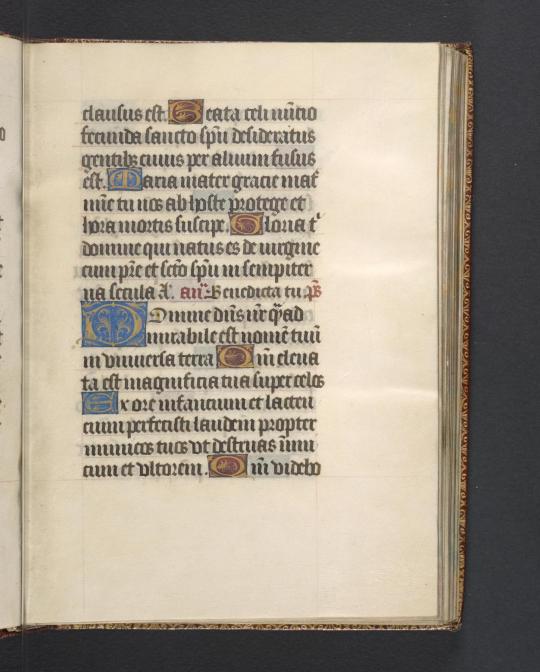 clausus est. Beata celi nūcio
fecunda sancto spū desideratus
gentibꝫ cuius per aluum fusus
est. Maria mater gracie mat᷑
mīe tu nos ab hoste protege et
hora mortis suscipe. Gloria t'
domine qui natus es de uirgine
cum pr̄e et sc̄to spū in sempiter
na secula A. an̄. Benedicta tu p̄s
Domine dn̄s nr̄ q̄ȝ ad
mirabile est nomē tuū
in vniuersa terra Qm̄ eleua
ta est magnificia tua super celos
Ex ore infancium et lacten
cium perfecisti laudem propter
inimicos tuos vt destruas inimi
cum et vltorem. Qm̄ videbo